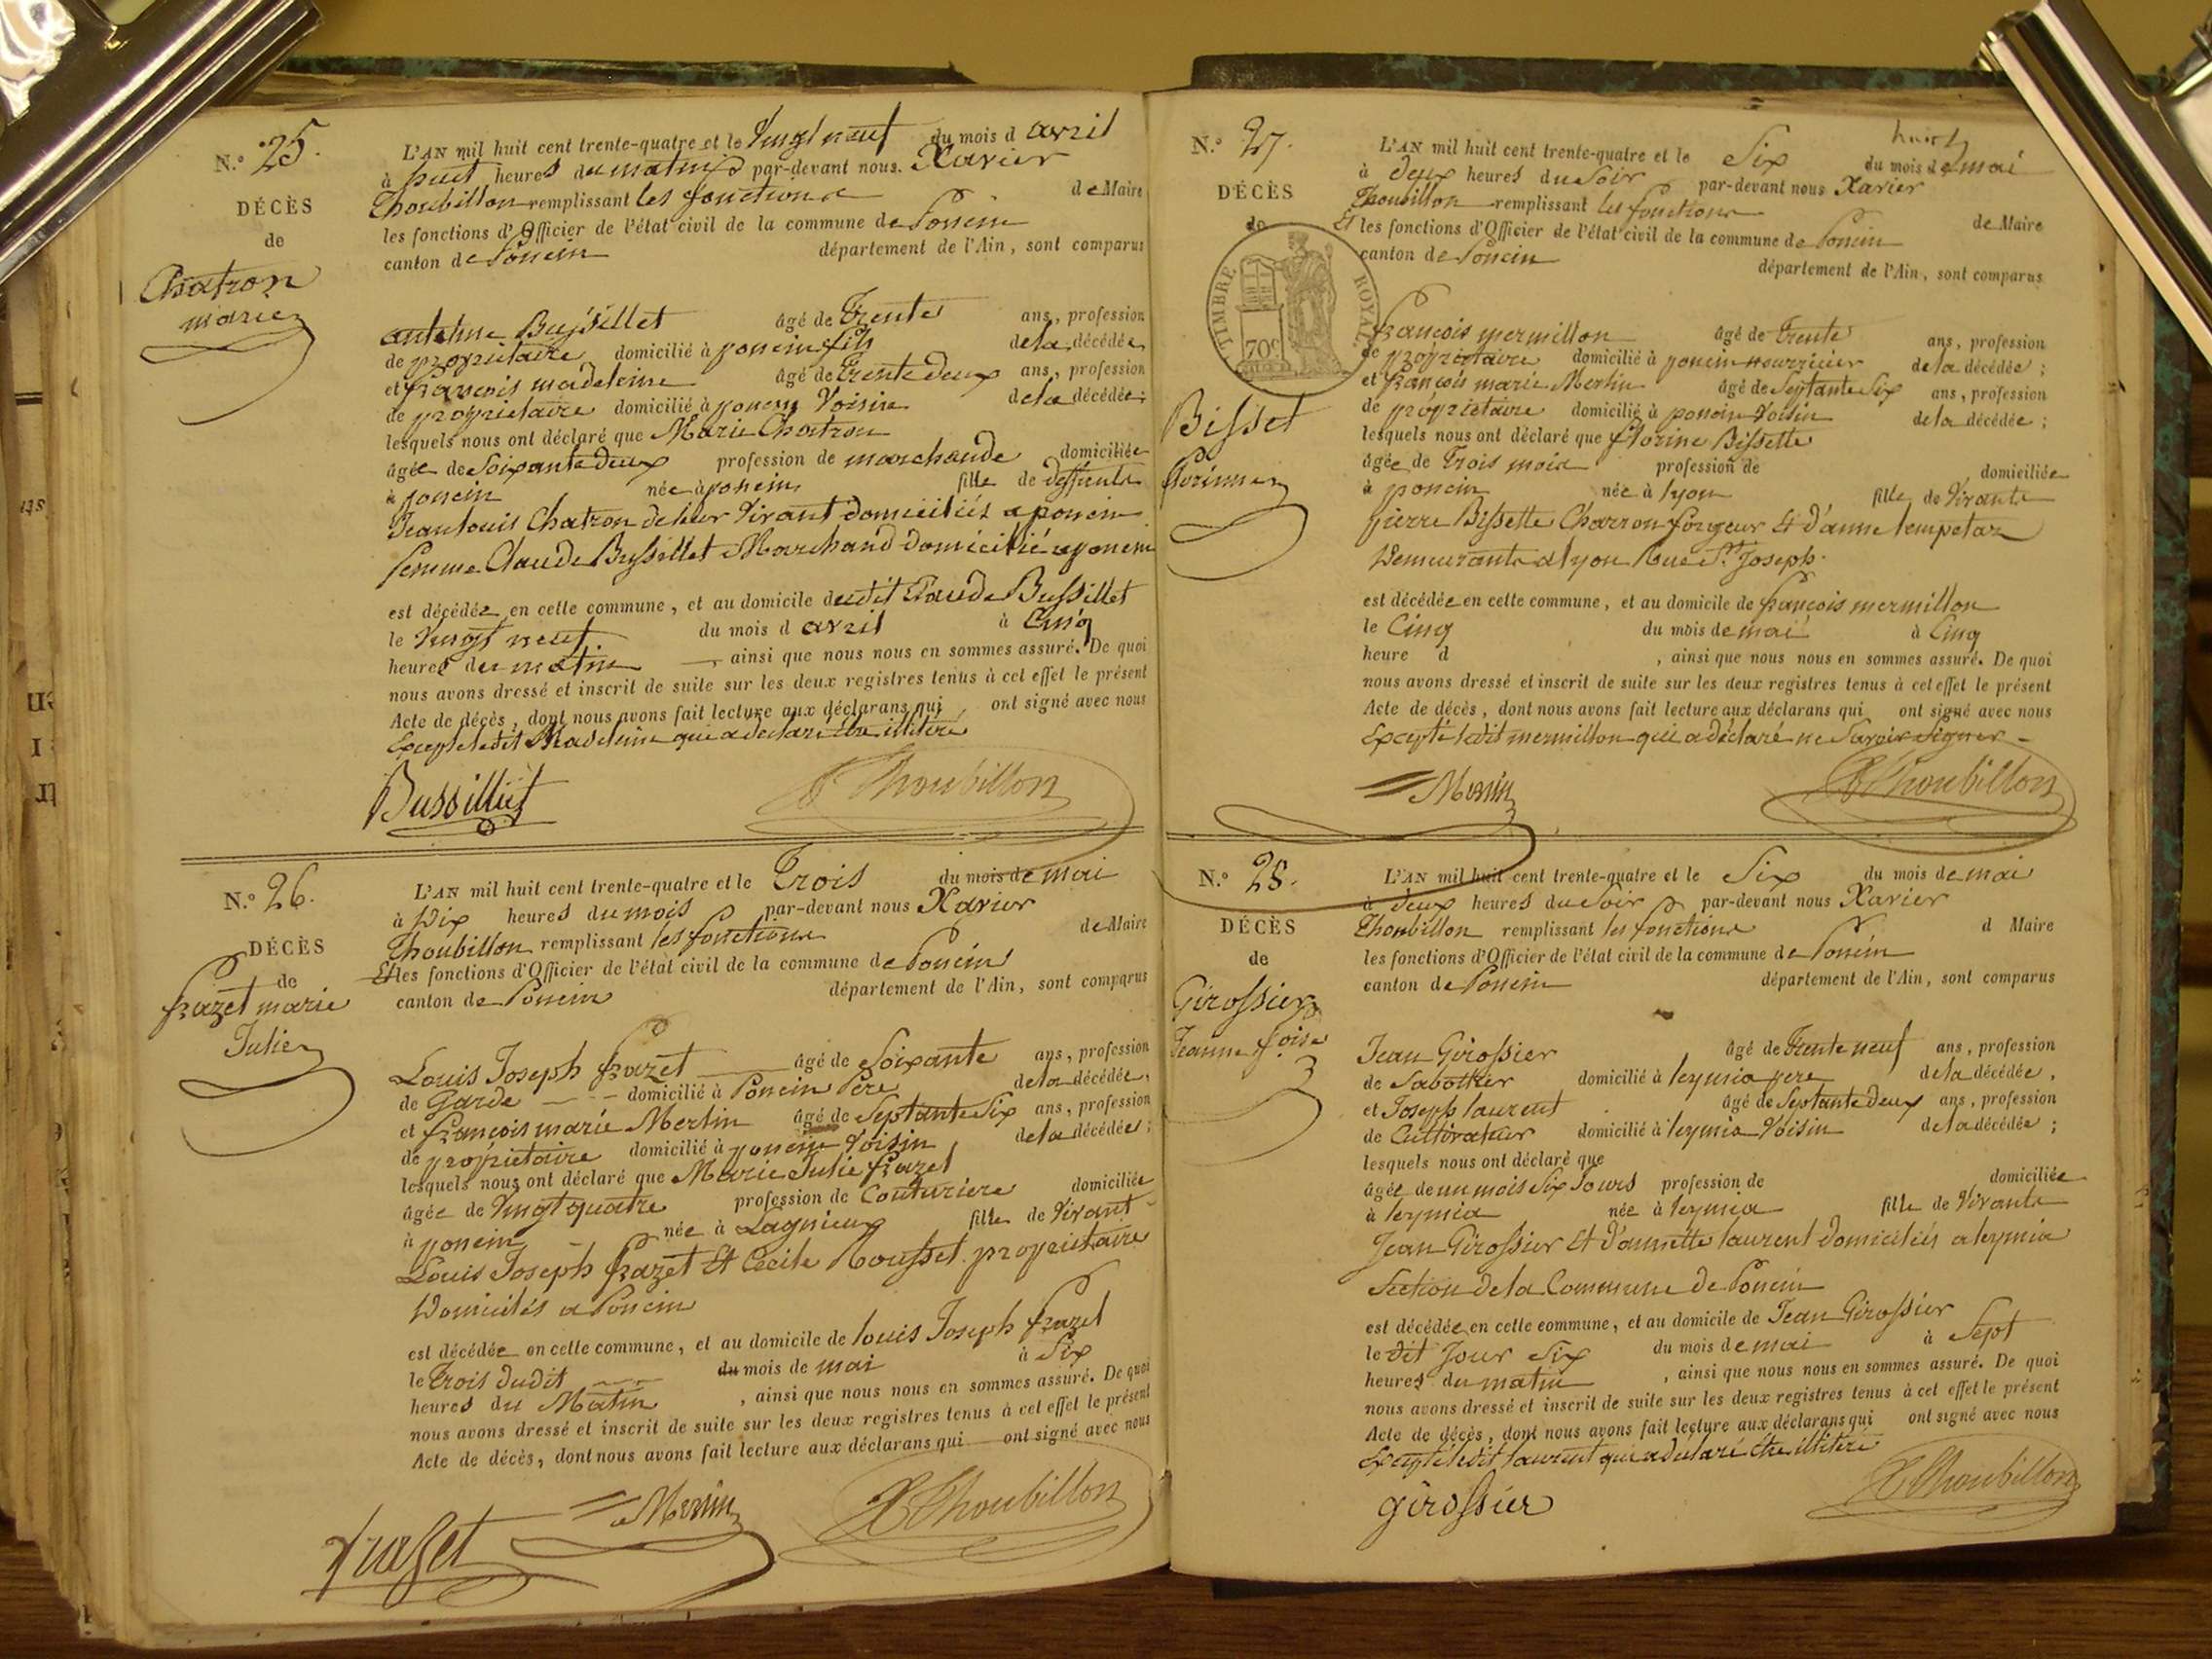 N.° 25.
DÉCÈS
de
Chatron
marie
L'AN mil huit cent trente-quatre et le Vingt neuf du mois d avril
à huit heures du matin par-devant nous. Xavier
Thoubillon remplissant les fonctions de Maire
les fonctions d'Officier de l'état civil de la commune de Poncin
canton de Poncin département de l'Ain, sont comparus
antelme Bussillet âgé de Trente ans, profession
de propriétaire domicilié à poncin fils de la décédée,
et françois madeleine âgé de Trente deux ans, profession
de propriétaire domicilié à poncin Voisin de la décédée;
lesquels nous ont déclaré que Marie Chatron
âgée de Soixante deux profession de marchande domiciliée
à poncin née à poncin fille de deffunts
Jean louis Chatron de leur Vivant domiciliés a poncin
femme Claude Bussillet Marchand domicilié a poncin
est décédée en cette commune, et au domicile dudit Claude Bussillet
le Vingt neuf du mois d avril à Cinq
heures du matin , ainsi que nous nous en sommes assuré. De quoi
nous avons dressé et inscrit de suite sur les deux registres tenus à cet effet le présent
Acte de décès, dont nous avons fait lecture aux déclarans qui ont signé avec nous
Excepté ledit Madeleine qui a déclaré être illitéré
Bussillet
X Thoubillon
N.° 26.
DÉCÈS
de
frazet marie
Julie
L'AN mil huit cent trente-quatre et le Trois du mois de mai
à Dix heures du mois par-devant nous Xavier
Thoubillon remplissant les fonctions de Maire
Et les fonctions d'Officier de l'état civil de la commune de Poncin
canton de Poncin département de l'Ain, sont comparus
Louis Joseph frazet âgé de Soixante ans, profession
de Garde domicilié à Poncin Père de la décédée,
et françois marie Merlin âgé de Septante Six ans, profession
de propriétaire domicilié à poncin Voisin de la décédée;
lesquels nous ont déclaré que Marie Julie frazet
âgée de Vingt quatre profession de Couturiere domiciliée
à poncin née à Lagnieux fille de Vivant
Louis Joseph frazet Et Cecile Rousset propriétaire
Domiciliés a Poncin
est décédée en cette commune, et au domicile de louis Joseph frazet
le Trois dudit du mois de mai à Six
heures du Matin , ainsi que nous nous en sommes assuré. De quoi
nous avons dressé et inscrit de suite sur les deux registres tenus à cet effet le présent
Acte de décès, dont nous avons fait lecture aux déclarans qui ont signé avec nous
frazet
Merlin
X Thoubillon
N.° 27.
DÉCÈS
de
TIMBRE ROYAL
70c
Bisset
florinne
L'AN mil huit cent trente-quatre et le Six du mois de mai
à deux heures du Soir par-devant nous Xavier
Thoubillon remplissant les fonctions de Maire
Et les fonctions d'Officier de l'état civil de la commune de Poncin
canton de Poncin département de l'Ain, sont comparus
françois mermillon âgé de Trente ans, profession
de propriétaire domicilié à poncin nourricier de la décédée;
et françois marie Merlin âgé de Septante Six ans, profession
de propriétaire domicilié à poncin Voisin de la décédée;
lesquels nous ont déclaré que florine Bissette
âgée de Trois mois profession de domiciliée
à poncin née à lyon fille de Vivants
pierre Bissette Charron forgeur Et d'anne tempetaz
Demeurants a lyon Rue St. Joseph.
est décédée en cette commune, et au domicile de françois mermillon
le Cinq du mois de mai à Cinq
heure d , ainsi que nous nous en sommes assuré. De quoi
nous avons dressé et inscrit de suite sur les deux registres tenus à cet effet le présent
Acte de décès, dont nous avons fait lecture aux déclarans qui ont signé avec nous
Excepté ledit mermillon qui a déclaré ne Savoir Signer
Merlin
X Thoubillon
N.° 28.
DÉCÈS
de
Girossier
Jeanne foise
L'AN mil huit cent trente-quatre et le Six du mois de mai
à deux heures du Soir par-devant nous Xavier
Thoubillon remplissant les fonctions d Maire
les fonctions d'Officier de l'état civil de la commune de Poncin
canton de Poncin département de l'Ain, sont comparus
Jean Girossier âgé de Trente neuf ans, profession
de Sabottier domicilié à leymia pere de la décédée,
et Joseph laurent âgé de Septante deux ans, profession
de Cultivateur domicilié à leymia Voisin de la décédée;
lesquels nous ont déclaré que
âgée de un mois Six Jours profession de domiciliée
à leymia née à leymia fille de Vivants
Jean Girossier Et d'annette laurent domiciliés a leymia
Section de la Commune de Poncin
est décédée en cette commune, et au domicile de Jean Girossier
le dit Jour Six du mois de mai à Sept
heures du matin , ainsi que nous nous en sommes assuré. De quoi
nous avons dressé et inscrit de suite sur les deux registres tenus à cet effet le présent
Acte de décès, dont nous avons fait lecture aux déclarans qui ont signé avec nous
Excepté ledit laurent qui a déclaré être illitéré
girossier
X Thoubillon